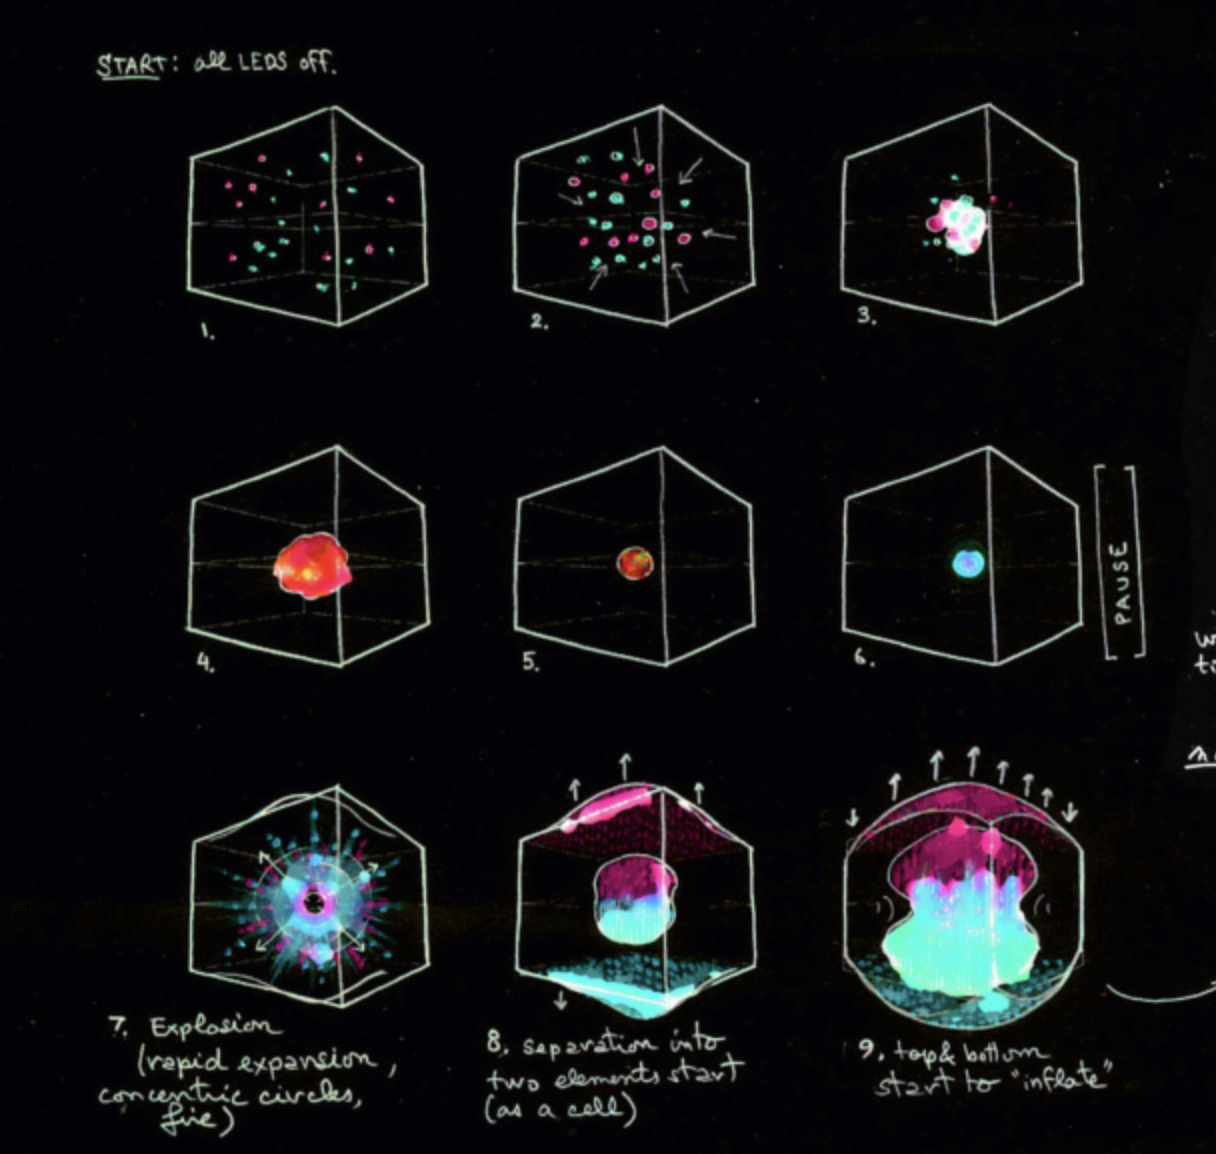 START: all LEDS off.
1.
2.
3.
4.
5.
6.
PAUSE
7. Explosion
(rapid expansion,
concentric circles,
fire)
8. separation into
two elements start
(as a cell)
9. top & bottom
start to "inflate"